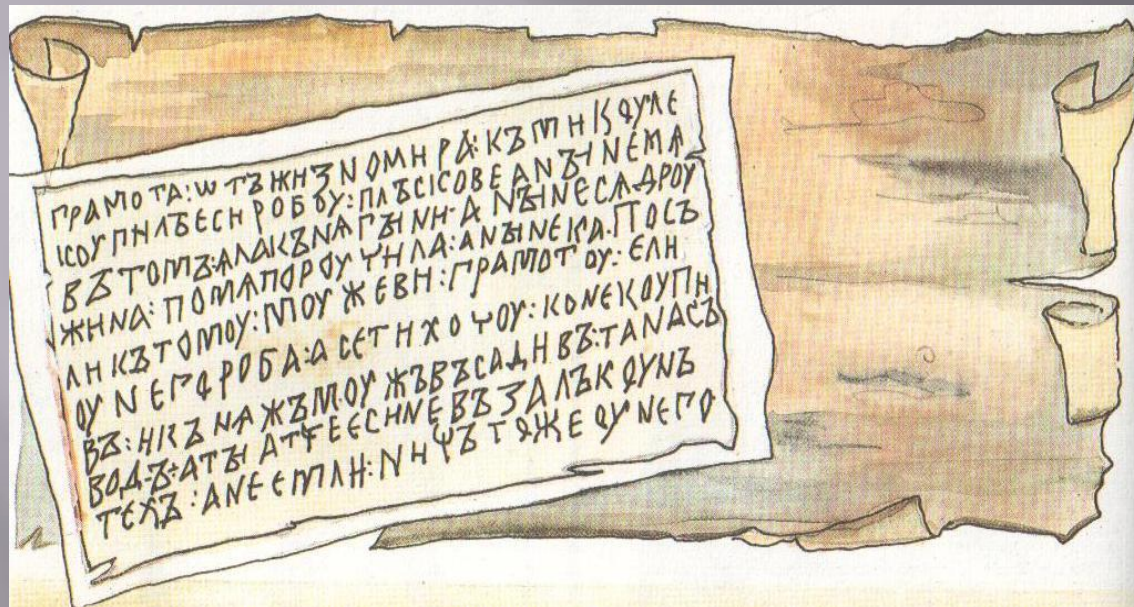 ГРАМОТА:ѠТЪЖИЗНОМИРА:КЪМИКОУЛЕ
КОУПИЛЪЕСИРОБОУ:ПЛЪСКОВЕАНЪІНЕМѦ
ВЪТОМЪ:АЛАКЪНАГЪІНИ·АНЪІНЕСѦДРОУ
ЖИНА:ПОМѦПОРОУЧИЛА:АНЪІНЕКА.ПОСЪ
ЛИКЪТОМОУ:МОУЖЕВИ:ГРАМОТОУ:ЕЛИ
ОУНЕГОРОБА:АСЕТИХОЧОУ:КОНЕКОУПИ
ВЪ:ИКЪНѦЖЪМОУЖЪВЪСАДИВЪ:ТАНАСЪ
ВОДЪ:АТЪІАТЧЕЕСИНЕВЪЗАЛЪКОУНЪ
ТЕХЪ:АНЕЕМЛИ:НИЧЪТОЖЕОУНЕГО